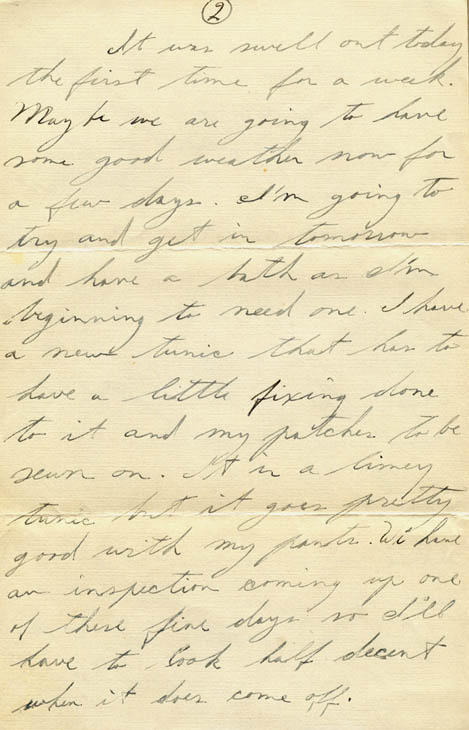 2
It was swell out today
the first time for a week.
Maybe we are going to have
some good weather now for
a few days. I'm going to
try and get in tomorrow
and have a bath as I'm
beginning to need one. I have
a new tunic that has to
have a little fixing done
to it and my patches to be
sewn on. It is a limey
tunic but it goes pretty
good with my pants. We have
an inspection coming up one
of these fine days so I'll
have to look half decent
when it does come off.